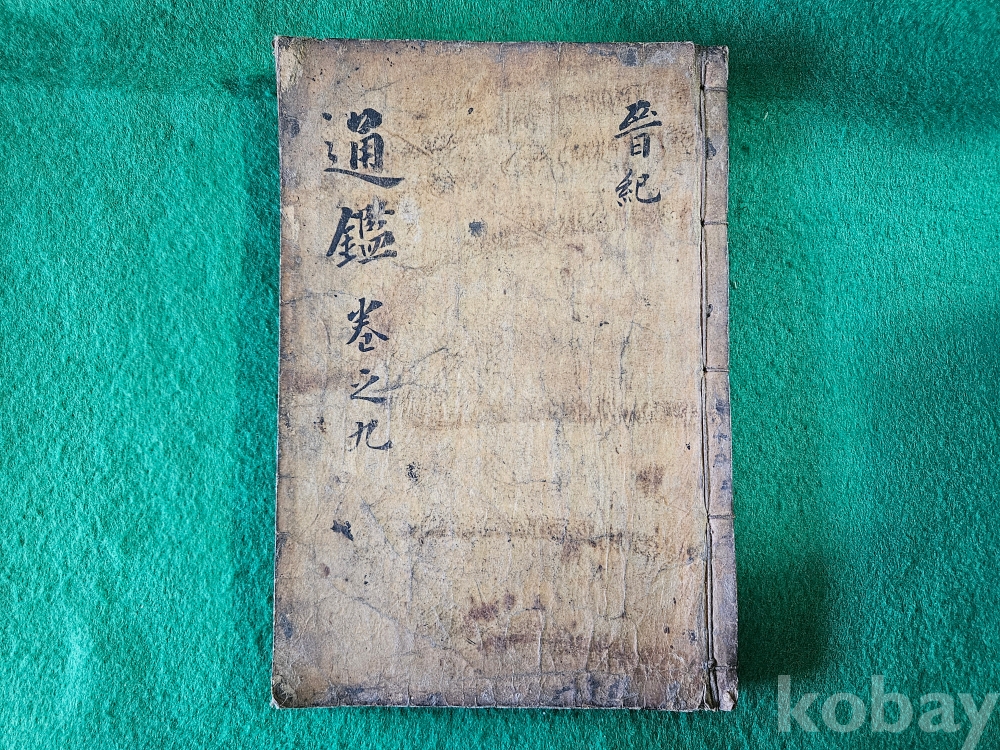 晉紀
通鑑 卷之九
kobay